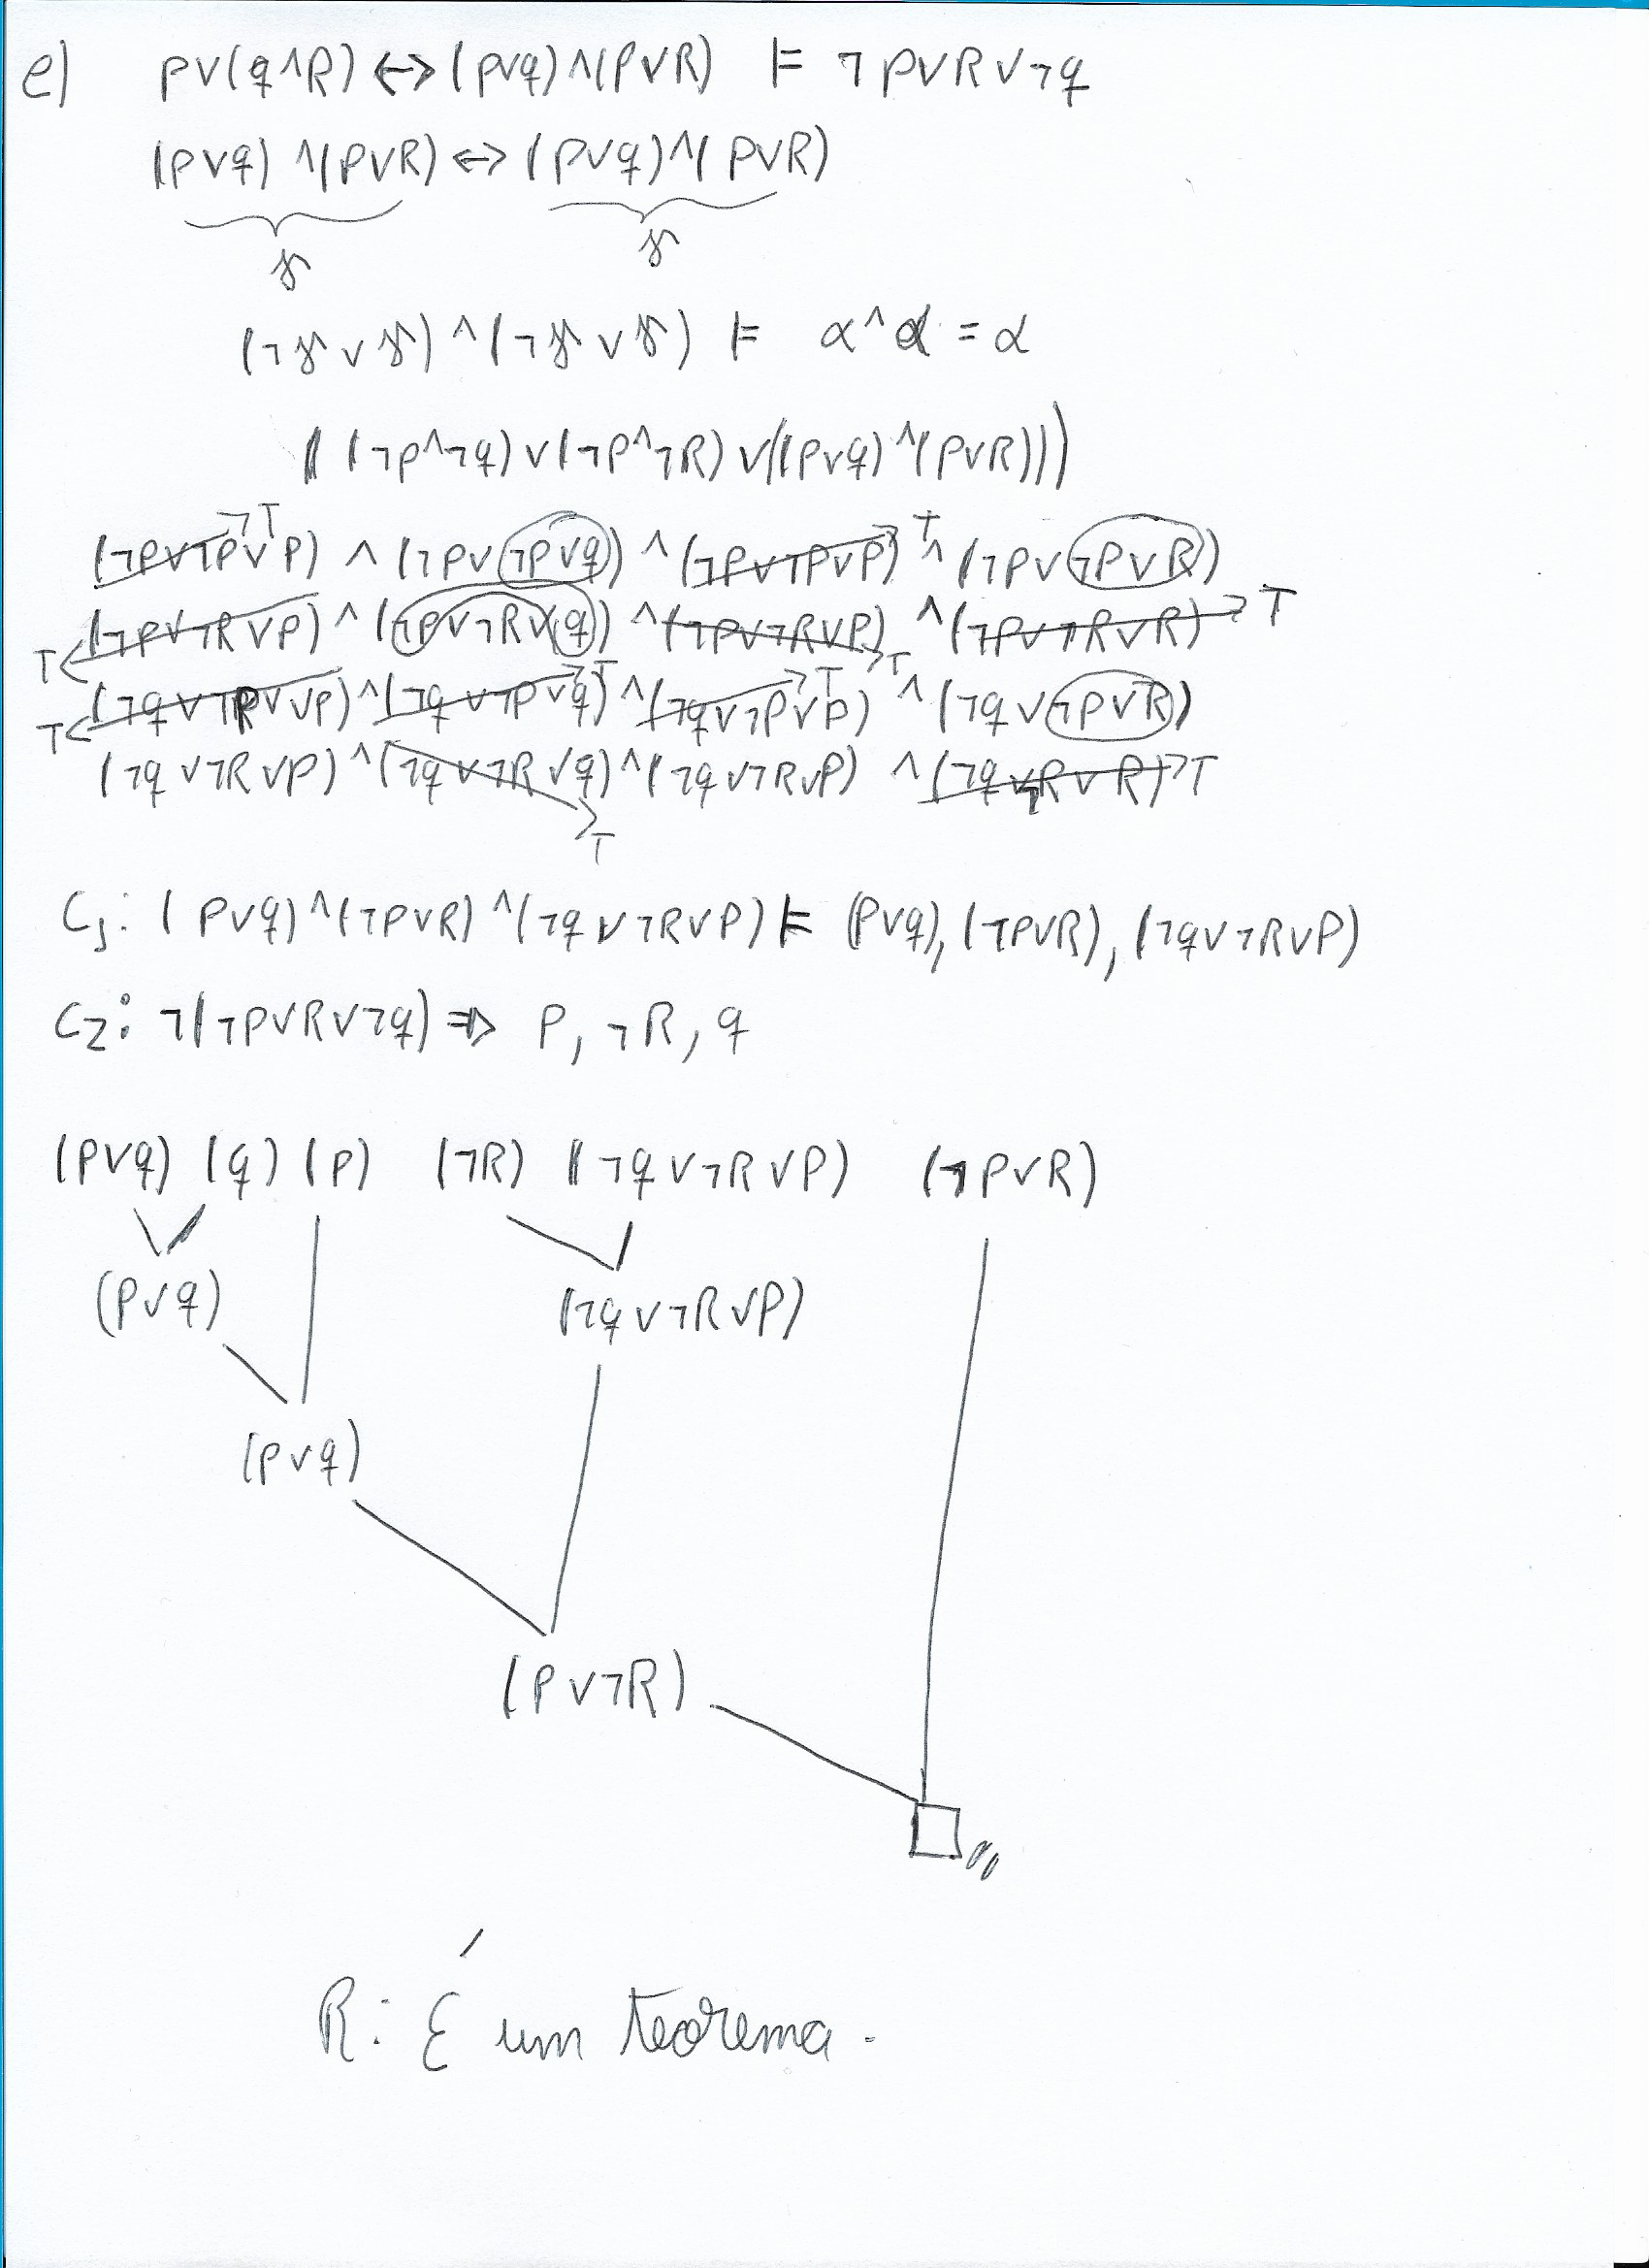 e) p∨(q∧R) ↔ (p∨q)∧(p∨R) ⊨ ¬p∨R∨¬q
(p∨q)∧(p∨R) ↔ (p∨q)∧(p∨R)
γ γ
(¬γ∨γ)∧(¬γ∨γ) ⊨ α∧α = α
((¬p∧¬q)∨(¬p∧¬R)∨((p∨q)∧(p∨R)))
(¬p∨¬p∨p) T ∧ (¬p∨¬p∨q) ∧ (¬p∨¬p∨p) T ∧ (¬p∨¬p∨R)
T (¬p∨¬R∨p) ∧ (¬p∨¬R∨q) ∧ (¬p∨¬R∨p) T ∧ (¬p∨¬R∨R) T
T (¬q∨¬p∨p) ∧ (¬q∨¬p∨q) T ∧ (¬q∨¬p∨p) T ∧ (¬q∨¬p∨R)
(¬q∨¬R∨p) ∧ (¬q∨¬R∨q) T ∧ (¬q∨¬R∨p) ∧ (¬q∨¬R∨R) T
C1: (p∨q)∧(¬p∨R)∧(¬q∨¬R∨p) ⊨ (p∨q), (¬p∨R), (¬q∨¬R∨p)
C2: ¬(¬p∨R∨¬q) ⇒ p, ¬R, q
(p∨q) (q) (p) (¬R) (¬q∨¬R∨p) (¬p∨R)
(p∨q) (¬q∨¬R∨p)
(p∨q)
(p∨¬R)
R: É um teorema.